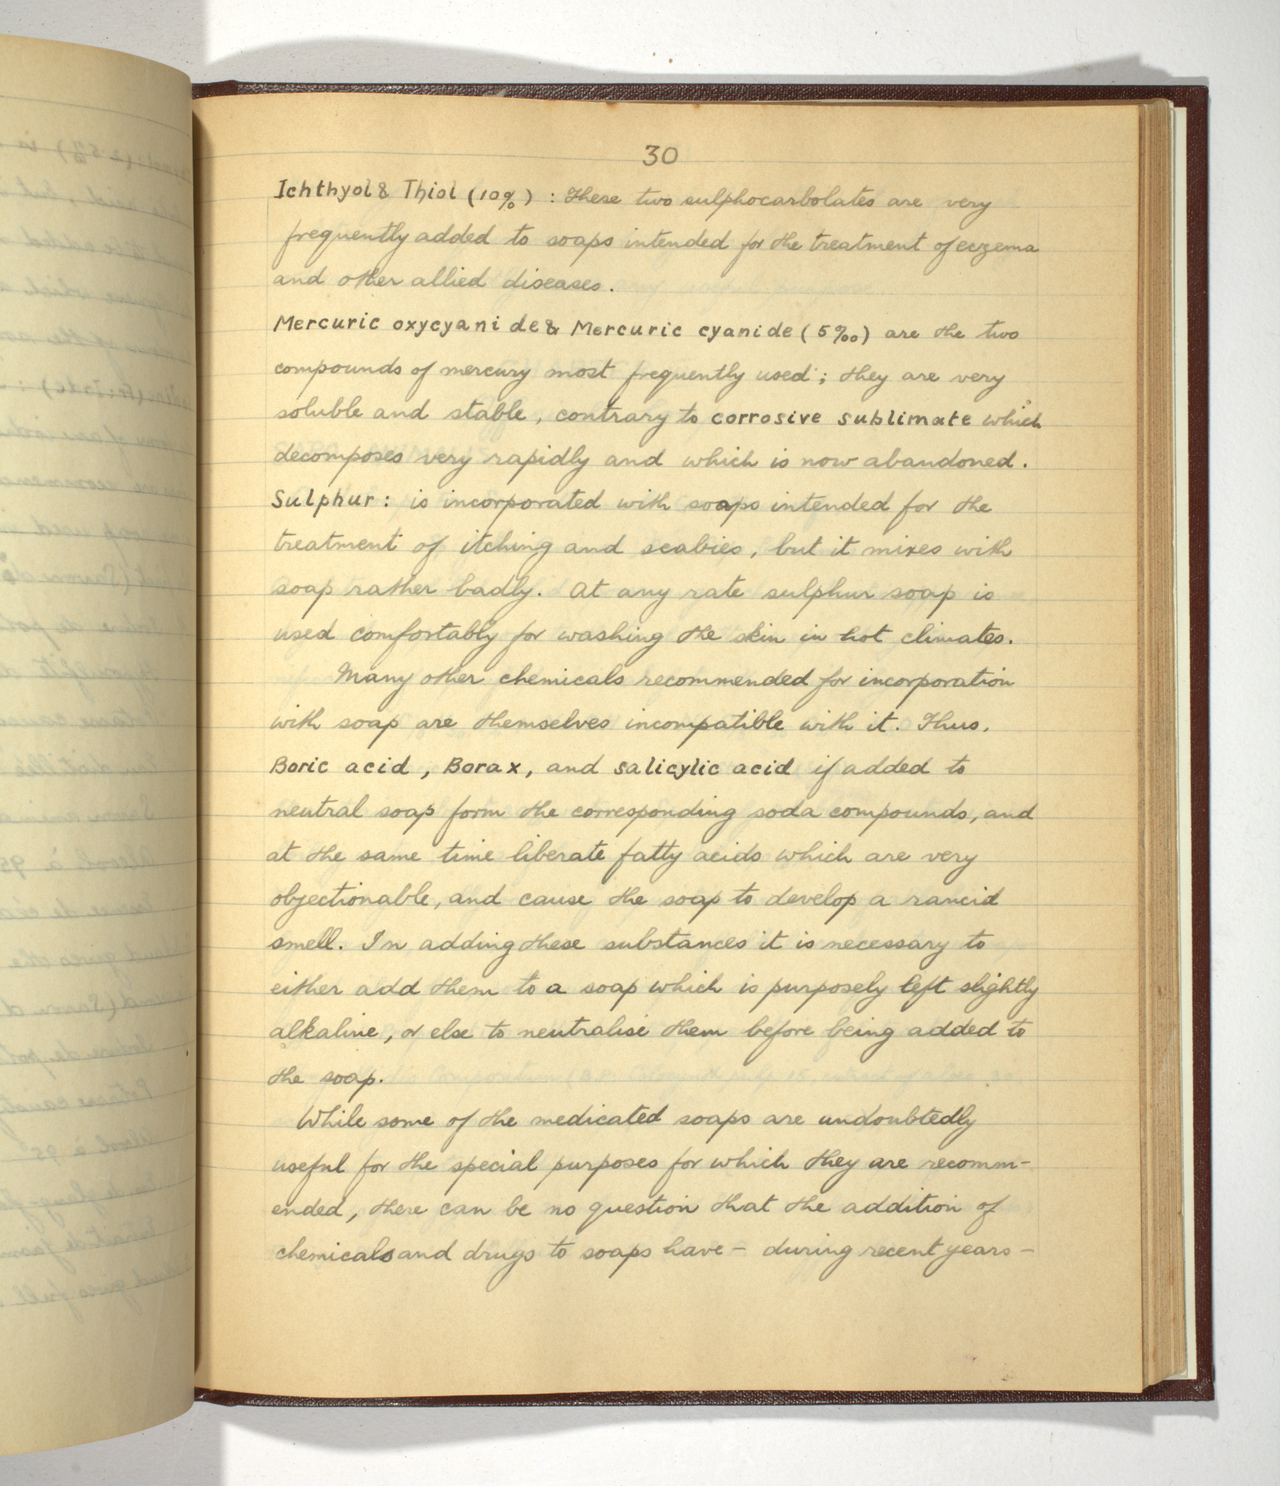 30
Ichthyol & Thiol (10%) : These two sulphocarbolates are very
frequently added to soaps intended for the treatment of eczema
and other allied diseases.
Mercuric oxycyanide & Mercuric cyanide (5‰) are the two
compounds of mercury most frequently used ; they are very
soluble and stable, contrary to corrosive sublimate which
decomposes very rapidly and which is now abandoned.
Sulphur : is incorporated with soaps intended for the
treatment of itching and scabies, but it mixes with
soap rather badly. At any rate sulphur soap is
used comfortably for washing the skin in hot climates.
Many other chemicals recommended for incorporation
with soap are themselves incompatible with it. Thus,
Boric acid, Borax, and salicylic acid if added to
neutral soap form the corresponding soda compounds, and
at the same time liberate fatty acids which are very
objectionable, and cause the soap to develop a rancid
smell. In adding these substances it is necessary to
either add them to a soap which is purposely left slightly
alkaline, or else to neutralise them before being added to
the soap.
While some of the medicated soaps are undoubtedly
useful for the special purposes for which they are recomm-
ended, there can be no question that the addition of
chemicals and drugs to soaps have - during recent years -